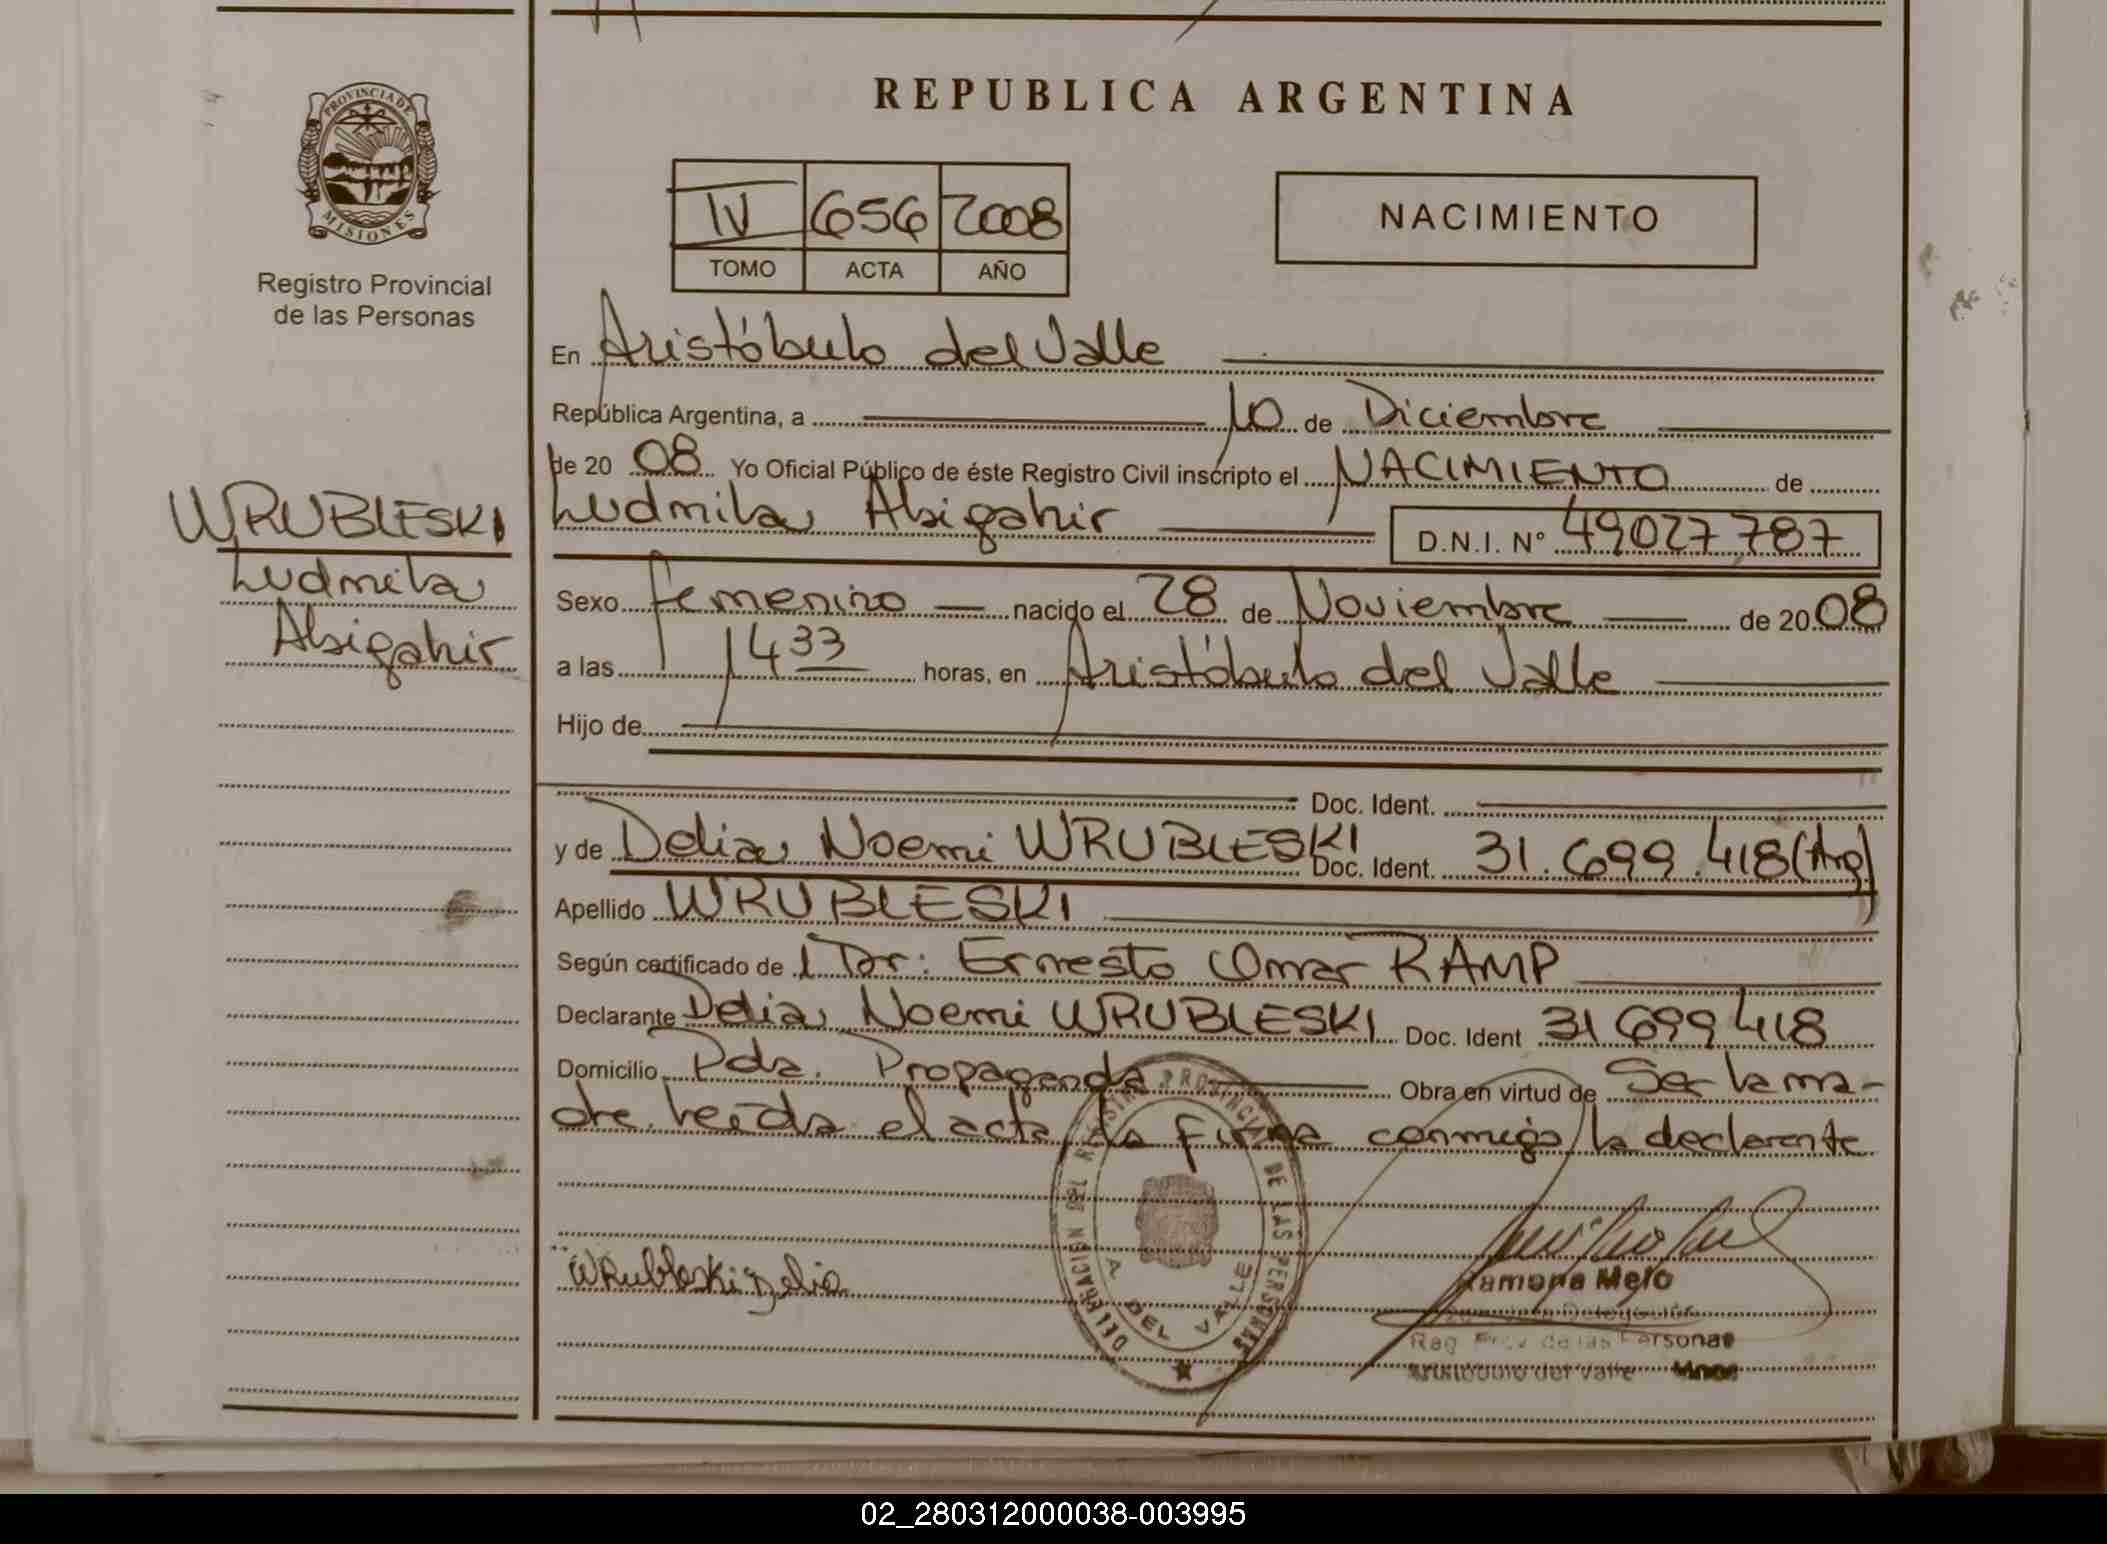 REPUBLICA ARGENTINA
PROVINCIA DE
MISIONES
Registro Provincial
de las Personas
IV 656 2008
TOMO ACTA AÑO
NACIMIENTO
En Aristóbulo del Valle
República Argentina, a 10 de Diciembre
de 20 08 Yo Oficial Público de éste Registro Civil inscripto el NACIMIENTO de
WRUBLESKI
Ludmila
Abigahir
Ludmila Abigahir D.N.I. N° 49027787
Sexo femenino nacido el 28 de Noviembre de 20 08
a las 14 33 horas, en Aristóbulo del Valle
Hijo de
Doc. Ident.
y de Delia Noemi WRUBLESKI Doc. Ident. 31.699.418 (Arg)
Apellido WRUBLESKI
Según certificado de Dr: Ernesto Omar RAMP
Declarante Delia Noemi WRUBLESKI Doc. Ident 31699418
Domicilio Pda. Propaganda Obra en virtud de Ser la ma-
dre. Leída el acta, la firma conmigo la declarante
DELEGACION DEL REGISTRO PROVINCIAL DE LAS PERSONAS
A. DEL VALLE
Wrubleski Delia
Ramona Melo
Reg Prov de las Personas
Aristobulo del Valle Mnes
02_280312000038-003995